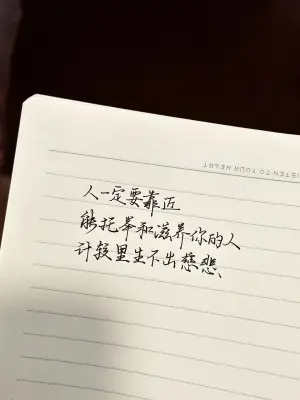 LISTEN TO YOUR HEART
人一定要靠近
能托举和滋养你的人
计较里生不出慈悲